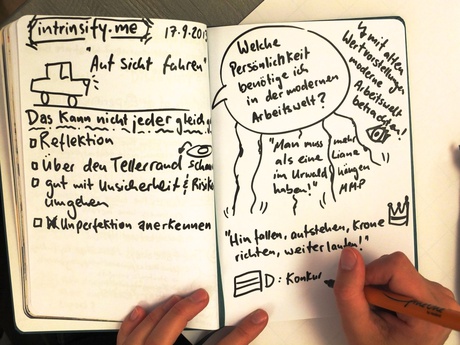 intrinsify.me 17.9.2013
"Auf Sicht fahren"
Das kann nicht jeder gleich
Reflektion
Über den Tellerrand schau
gut mit Unsicherheit & Risiko
umgehen
Unperfektion anerkennen
Welche
Persönlichkeit
benötige ich
in der modernen
Arbeitswelt?
mit alten
Wertvorstellungen
moderne
Arbeitswelt
betrachten!
"Man muss mehr
als eine Liane
im Urwald hängen
haben!" MMP
"Hinfallen, aufstehen, Krone
richten, weiterlaufen!"
D: Konkur